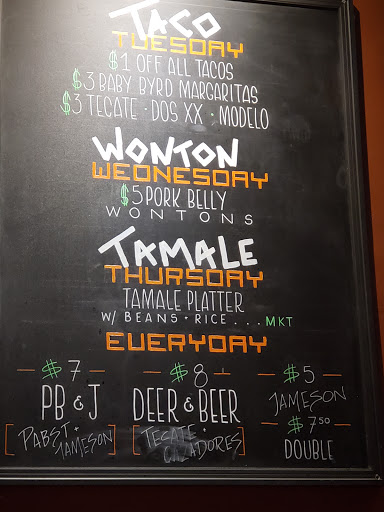 TACO
TUESDAY
$1 OFF ALL TACOS
$3 BABY BYRD MARGARITAS
$3 TECATE · DOS XX · MODELO
WONTON
WEDNESDAY
$5 PORK BELLY
WONTONS
TAMALE
THURSDAY
TAMALE PLATTER
W/ BEANS + RICE ... MKT
EVERYDAY
— $7 —
PB & J
[PABST + JAMESON]
— $8 —
DEER & BEER
[TECATE + CAZADORES]
— $5 —
JAMESON
— $7.50 —
DOUBLE